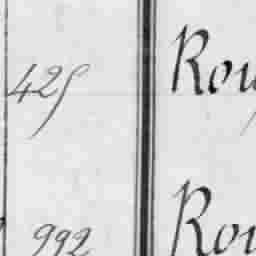 425 Rou
992 Rou